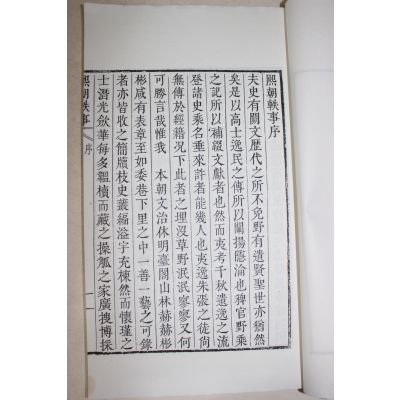 熙朝軼事序
夫史有闕文歷代之所不免野有遺賢聖世亦猶然
矣是以高士逸民之傳所以闡揚隱淪也稗官野乘
之記所以補綴文獻者也然而夷考千秋遺逸之流
登諸史乘名垂來許者能幾人也夷逸朱張之徒尙
無傳於經籍況下此者之埋沒草野泯泯寥寥又何
可勝言哉惟我 本朝文治休明臺閣山林赫赫彬
彬咸有表章至如委巷下里之中一善一藝之可錄
者亦皆收之簡牘枝史叢編溢宇充棟然而懷瑾之
士潛光斂華每多韞櫝而藏之操觚之家廣搜博採
熙朝軼事 序 一